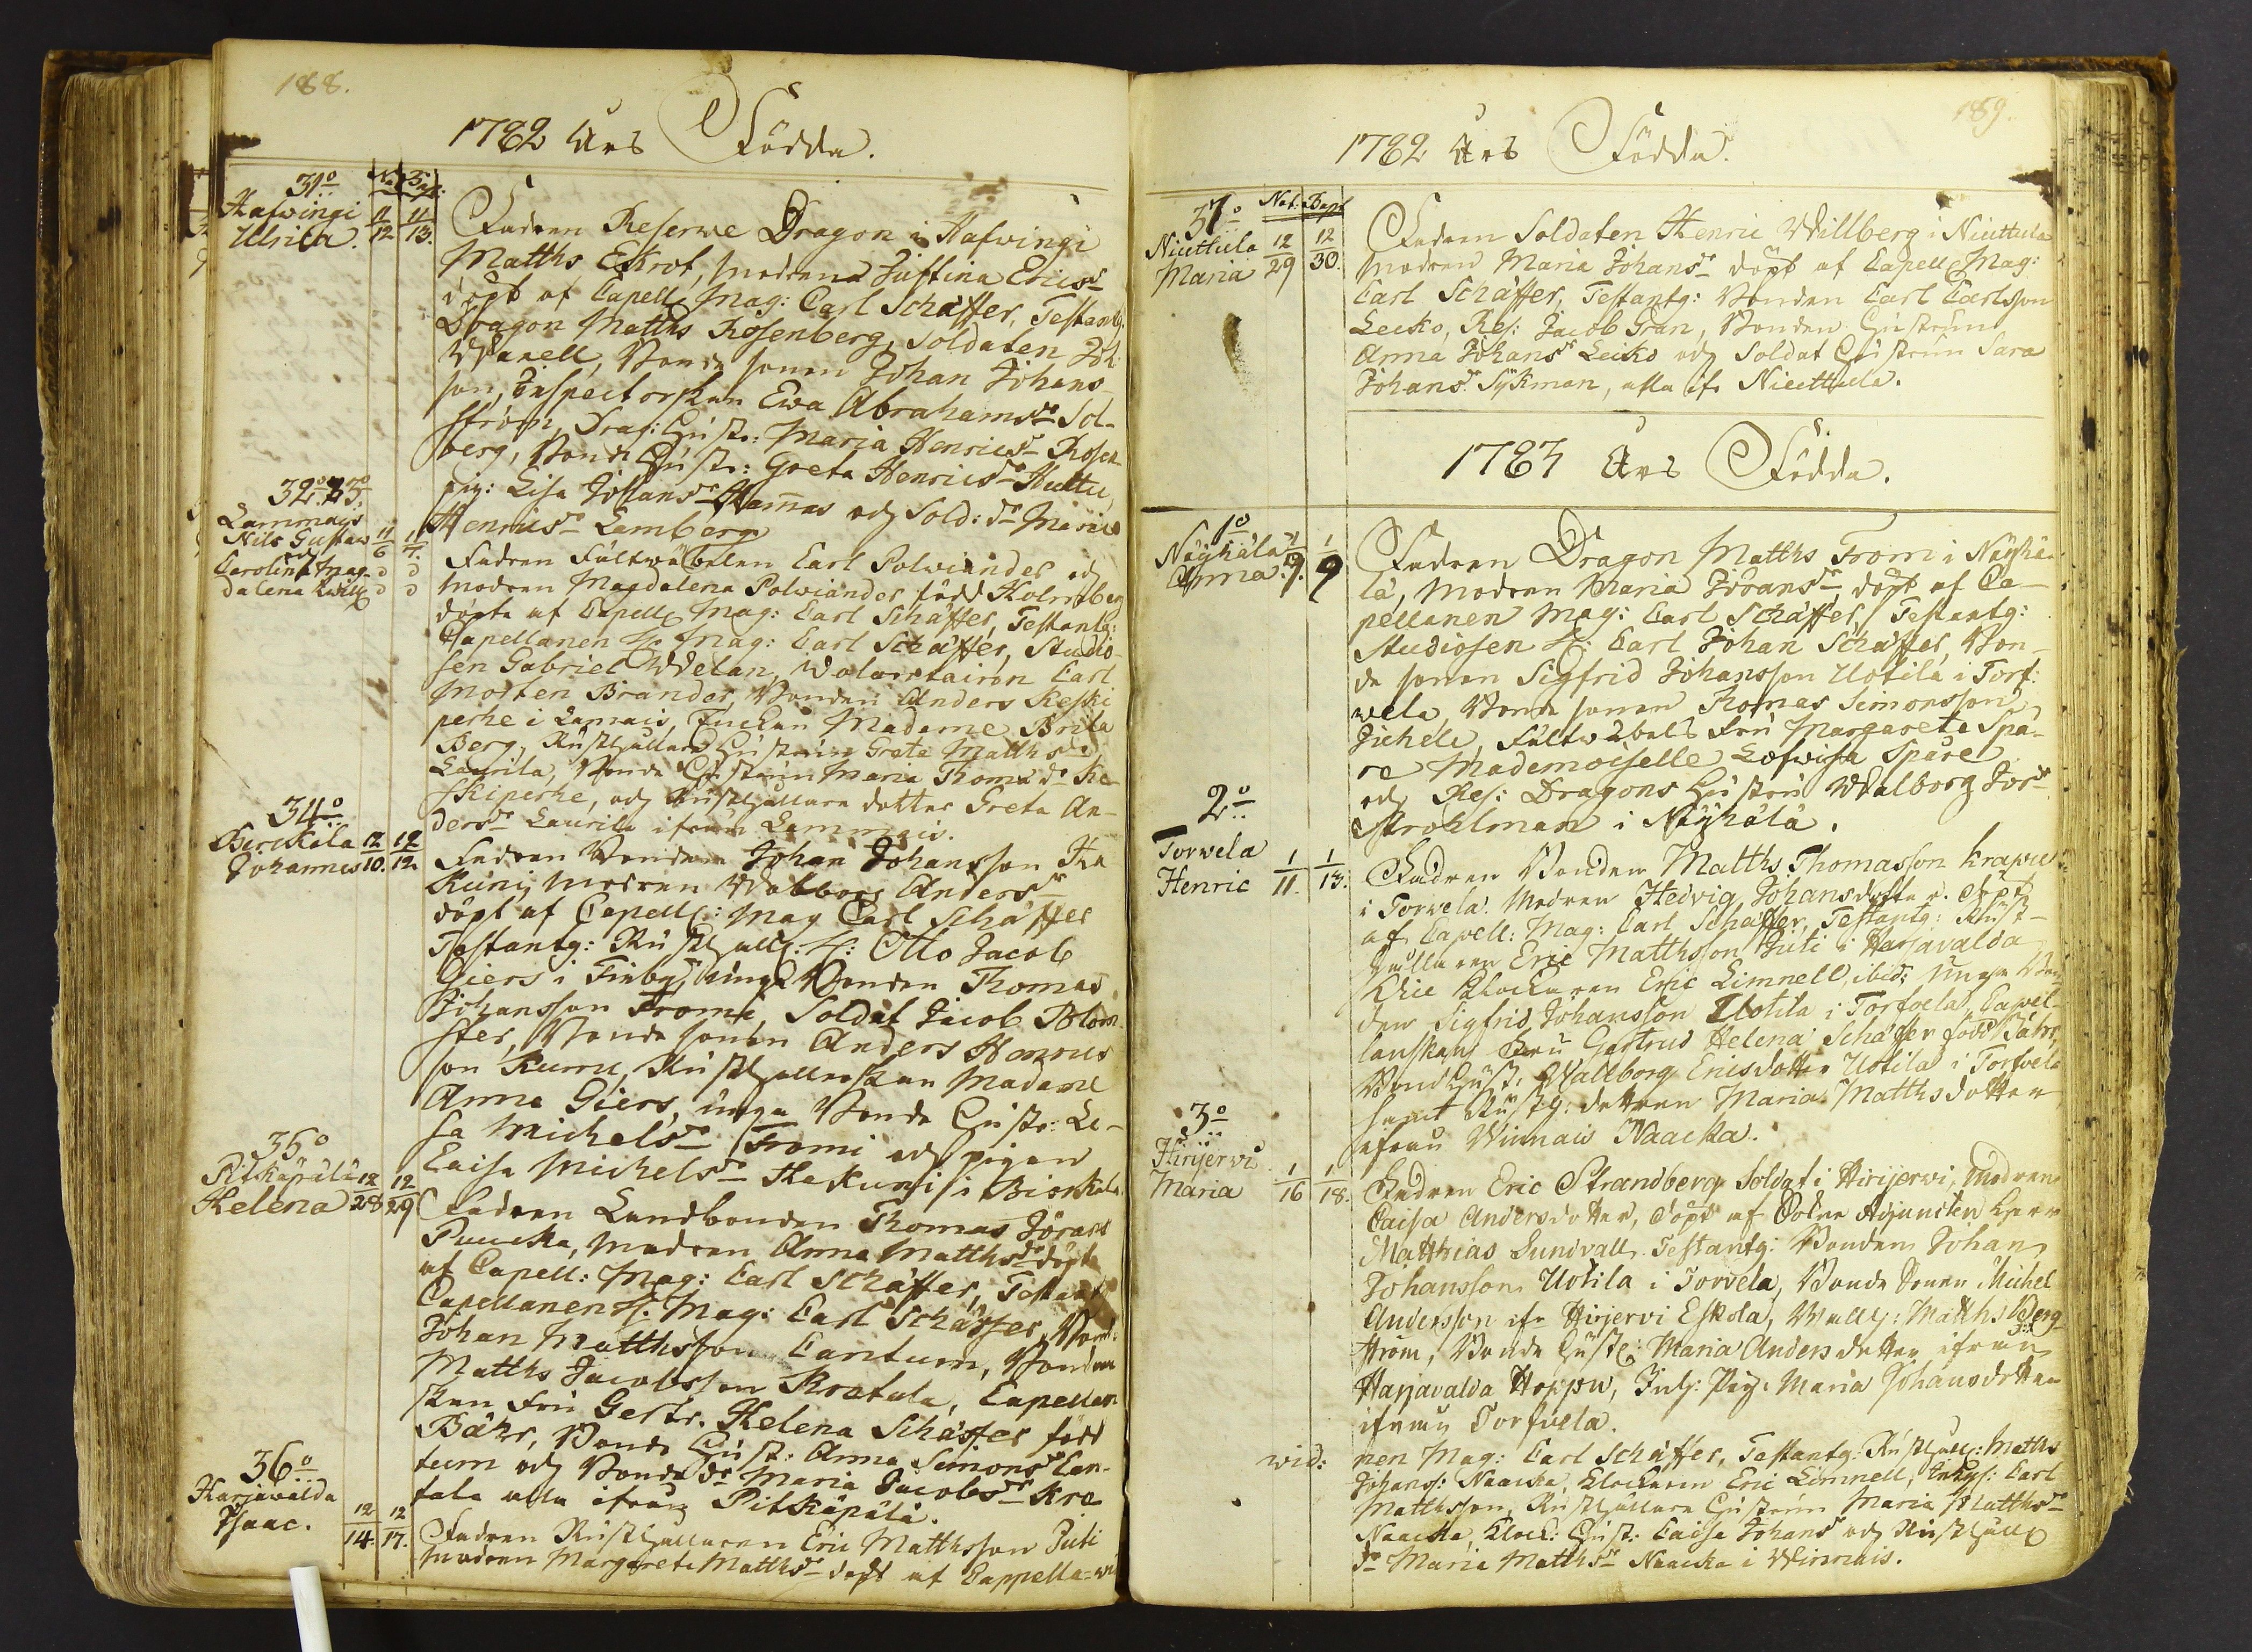 188.
1782 Års Födda.
Nat. Bapt.
31o
Hafwingi
Ulrica.
11/12 11/13.
Fadren Reserwe Dragon i Hafwingi
Matths Ekrot, modren Justina Ericsdr
döpt af Capell. Mag: Carl Schäffer, Testantg.
Dragon Matths Rosenberg, Soldaten Joh:
Bonde sonen Johan Johans
son, Inspectorskan Ewa Abrahamsdr Sol-
ström, Drag: Hustr: Maria Henricsdr Rosen
berg, Bond Hustr: Greta Henricsdr Huttu,
pig: Lisa Johansdr Hannas och Sold: dr Maria
Henricsdr Lamberg
32o 33o
Lammais
Nils Gustaw
och
Carolina Mag-
dalena
11/6 11/7.
Fadren Fältwäbelen Carl Polviander och
modren Magdalena Polviander född Holmberg
döpte af Capell. Mag: Carl Schäffer, Testantg:
Capellanen H. Mag: Carl Schäffer, Studio-
sen Gabriel Welan, Volontairen Carl
Morten Brander, Bonden Anders Keski
perhe i Lamais, Fruan Madame Brita
Berg, Rusthållare Hustrun Greta Matthsdr
Laurila, Bonde Hustrun Maria Thomædr Ke
skiperhe, och Rusthållare dotter Greta An-
dersdr Laurila ifrån Lammais.
34o
Birckala
Johannes
12/10. 12/12
Fadren Bonden Johan Johansson Ha
kuni, modren Walborg Andersdr
döpt af Capell: Mag Carl Schäffer
Testantg: Rusthåll: H: Otto Jacob
Giers i Finby, unga Bonden Thomas
Johansson Fromi, Soldat Jacob Blom
ster, Bonde sonen Anders Henrics
son Kumu, Rusthållerskan Madame
Anna Giers, unga Bonde Hustr: Li-
sa Michelsdr Fromi och pigan
Caisa Michelsdr Hakuni i Biorkala.
35o
Pitkäpälä
Helena
12/28 12/29
Fadren Landbonden Thomas Jörans
Puucka, modren Anna Matthsdr döpt
af Capell: Mag: Carl Schäffer, Testant
Capellanen H. Mag: Carl Schäffer, Bond:
Johan Matthsson Cantum, Bonden
Matths Jacobsson Kratula, Capellan
skan Fru Gertr. Helena Schäffer född
Bähr, Bonde Hust: Anna Simonsdr Can-
tum och Bonde dr Maria Jacobsdr Kra
tala alla ifrån Pitkäpälä.
36o
Harjawalda
Isaac.
12/14. 12/17.
Fadren Rusthållaren Eric Matthsson Juti
modren Margareta Matthsdr döpt af Cappella-
189.
1782 Års Födda.
Nat. Bapt
37o
Niuttula
Maria
12/29 12/30.
Fadren Soldaten Henric Willberg i Niuttula
modren Maria Johansdr döpt af Capell Mag:
Carl Schäffer, Testantg: Bonden Carl Carlsson
Leiko, Res: Jacob Gran, Bonden Hustrun
Anna Johansdr Leiko och Soldat Hustrun Sara
Johansdr Sykman, alla ifr Niuttula.
1783 Års Födda.
1o
Näyhälä
Anna.
1/9. 1/9
Fadren Dragon Matths From i Näyhä-
lä, modren Maria Jöransdr, döpt af Ca-
pellanen Mag: Carl Schäffer, Testantg:
Studiosen H: Carl Johan Schäffer, Bon-
de sonen Sigfrid Johansson Uotila i Torf:
wela, Bonde sonen Thomas Simonsson
Jichele, Fältwäbels Fru Margareta Spå-
re Mademoiselle Lofwisa Spåre
och Res: Dragons Hustru Walborg Jorsdr
Strohlman i Näyhälä.
2o
Torwela
Henric
1/11. 1/13.
Fadren Bonden Matths Thomasson Krapu
i Torwela. Modren Hedvig Johansdotter. Döpt
af Capell: Mag: Carl Schäffer, Testantg: Rust-
hållaren Eric Matthsson Juti i Harjavalda
Klockaren Eric Limnell, ibid; Unga Bon
den Sigfrid Johansson Uotila i Torfvela, Capel-
lanskan Fru Gertrud Helena Schäffer född Bähr,
Bond Hust. Wallborg Ericsdotter Uotila i Torfvela
samt Rusth: dottren Maria Matthsdotter
ifrån Winnais Naacka.
3o
Hirijerwi
Maria
1/16 1/18.
Fadren Eric Strandberg Soldat i Hirijerwi, Modren
Caisa Andersdotter, Döpt af Pedre Adjuncten Herr
Matthias Sundvall. Testantg: Bonden Johan
Johansson Uotila i Torvela, Bonde Sonen Michel
Andersson ifr Hirjervi Eskola, Matths Berg-
ström, Bonde Hustr: Maria Andersdotter ifrån
Harjavalda Hoppu, Inh: Pig: Maria Johansdotter
ifrån Torfvela.
wid: nen Mag: Carl Schäffer, Testantg: Rusthåll: Matths
Johans: Naacka, Klockaren Eric Limnell, Carl
Matthsson, Rusthållare Hustrun Maria Matthsdr
Naacka, Klock: Hust: Caisa Johansdr och Rusthåll
dr Maria Matthsdr Naacka i Winnais.